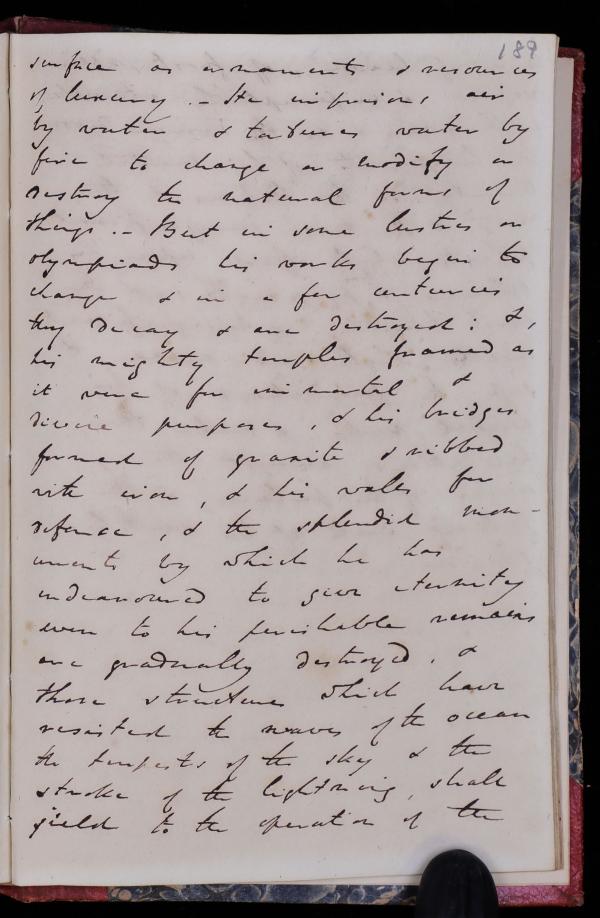 189
surface as ornaments & resources
of luxury. – He imprisons air
by water & tortures water by
fire to change or modify or
destroy the natural forms of
things. – But in some lustres or
olympiads his works begin to
change & in a few centuries
they decay & are destroyed: &,
his mighty temples framed as
it were for immortal &
divine purposes, & his bridges
formed of granite & ribbed
with iron, & his walls for
defence, & the splendid mon-
uments by which he has
endeavoured to give eternity
even to his perishable remains
are gradually destroyed. &
those structures which have
resisted the waves of the ocean
the tempests of the sky & the
stroke of the lightning, shall
yield to the operation of the